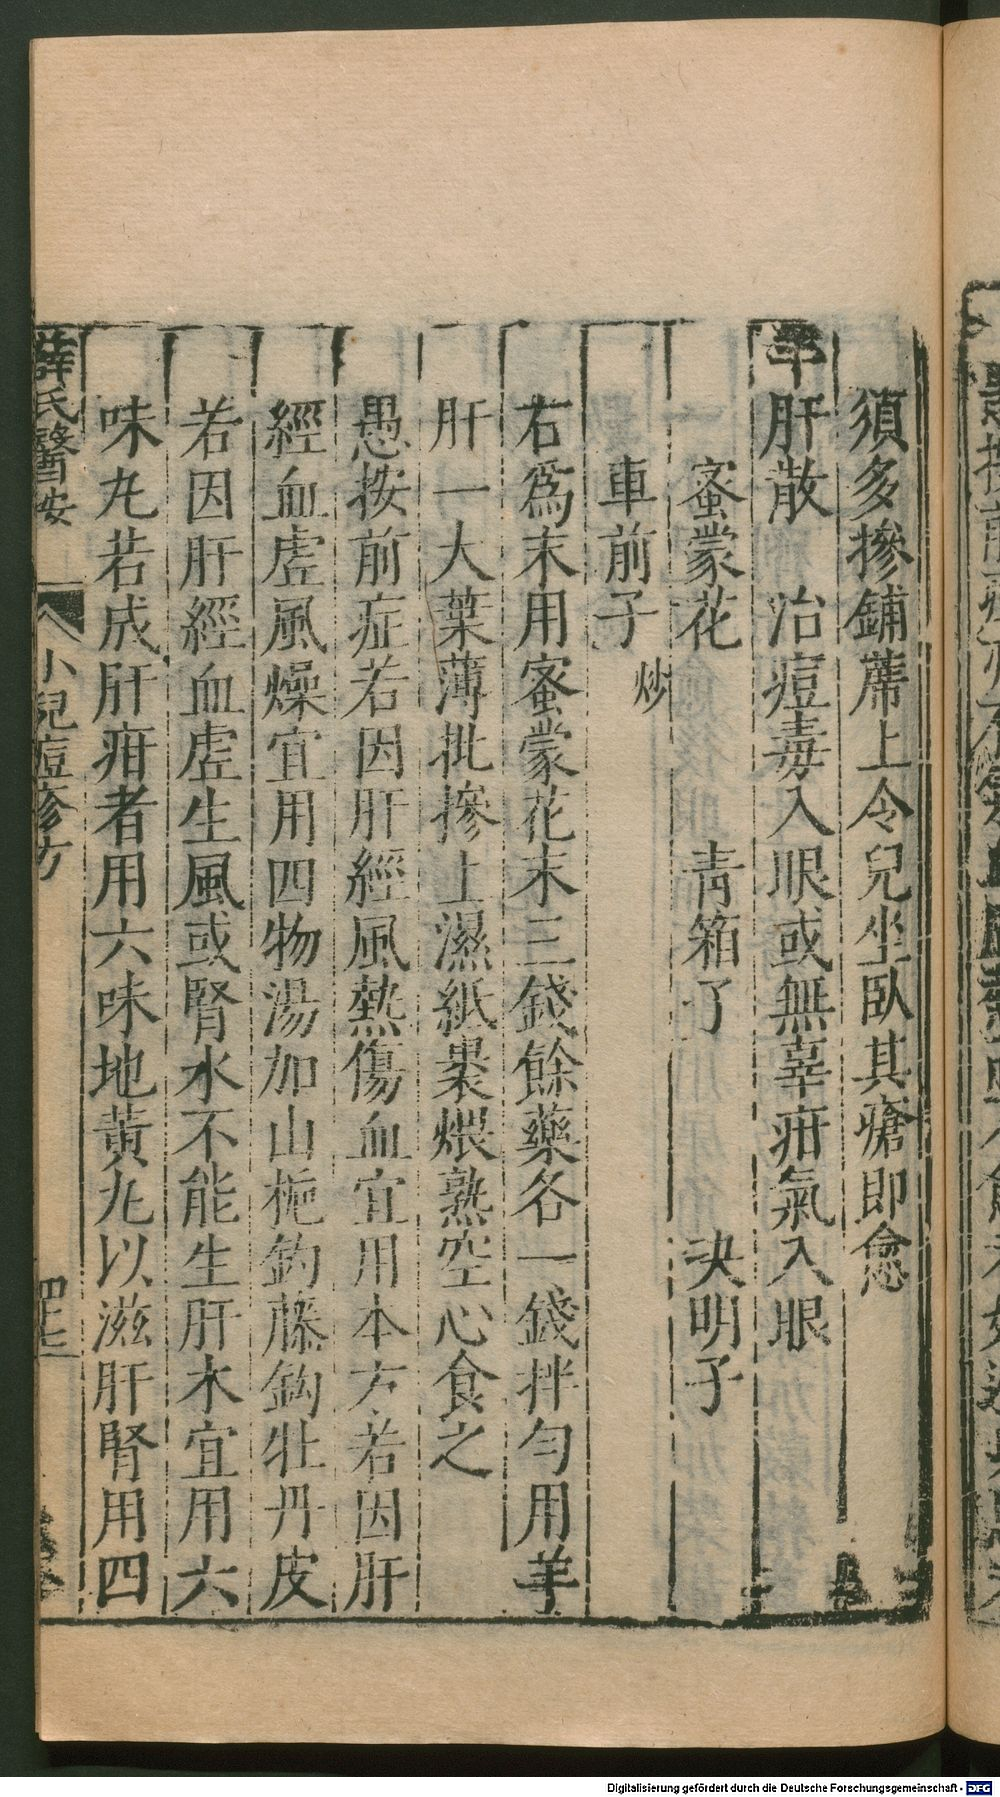 須多摻鋪蓆上令兒坐臥其瘡卽愈
羊肝散　治痘毒入眼或無辜疳氣入眼
蜜蒙花　青箱了　決明子
車前子炒
右爲末用蜜蒙花末三錢餘藥各一錢拌勻用羊
肝一大葉薄批摻上濕紙裹煨熟空心食之
愚按前症若因肝經風熱傷血宜用本方若因肝
經血虛風燥宜用四物湯加山梔釣藤鈎牡丹皮
若因肝經血虛生風或腎水不能生肝木宜用六
味丸若成肝疳者用六味地黃丸以滋肝腎用四
薛氏醫按　小兒痘疹方　四十七
Digitalisierung gefördert durch die Deutsche Forschungsgemeinschaft - DFG